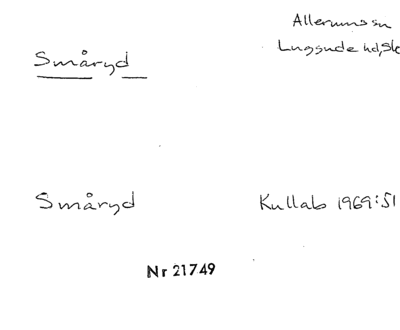 Allerums sn
Småryd
Luggude hd, Sk
Småryd
Kullab 1969:51
Nr 21749